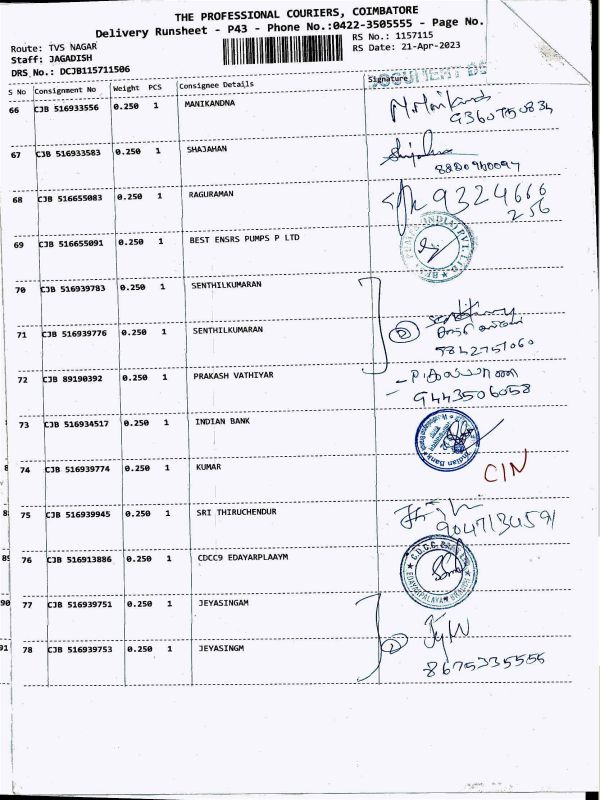 THE PROFESSIONAL COURIERS, COIMBATORE
Delivery Runsheet - P43 - Phone No.:0422-3505555 - Page No.
Route: TVS NAGAR RS No.: 1157115
Staff: JAGADISH RS Date: 21-Apr-2023
DRS No.: DCJB115711506
S No Consignment No Weight PCS Consignee Details Signature
66 CJB 516933556 0.250 1 MANIKANDNA
67 CJB 516933583 0.250 1 SHAJAHAN
68 CJB 516655083 0.250 1 RAGURAMAN 9324666
256
69 CJB 516655091 0.250 1 BEST ENSRS PUMPS P LTD
70 CJB 516939783 0.250 1 SENTHILKUMARAN
71 CJB 516939776 0.250 1 SENTHILKUMARAN
9842751060
72 CJB 89190392 0.250 1 PRAKASH VATHIYAR
9443506058
73 CJB 516934517 0.250 1 INDIAN BANK Indian Bank
74 CJB 516939774 0.250 1 KUMAR CIN
75 CJB 516939945 0.250 1 SRI THIRUCHENDUR
9047134591
76 CJB 516913886 0.250 1 CDCC9 EDAYARPLAAYM
77 CJB 516939751 0.250 1 JEYASINGAM
78 CJB 516939753 0.250 1 JEYASINGM
8675335555